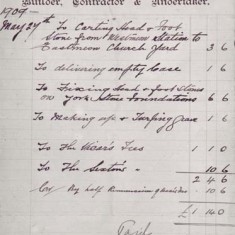 Builder, Contractor & Undertaker.
1909
May 27th To Carting Head & Foot
Stone from Station to
Eastnor Church Yard 3 6
To delivering empty case 1 6
To Fixing Head & foot Stones
on York Stone Foundations 6 6
To Making up & Turfing Grave 1 6
To The Vicar's Fees 1 1 0
To The Sexton's 10 6
2 4 6
By half 10 6
£1 14 0
Paid